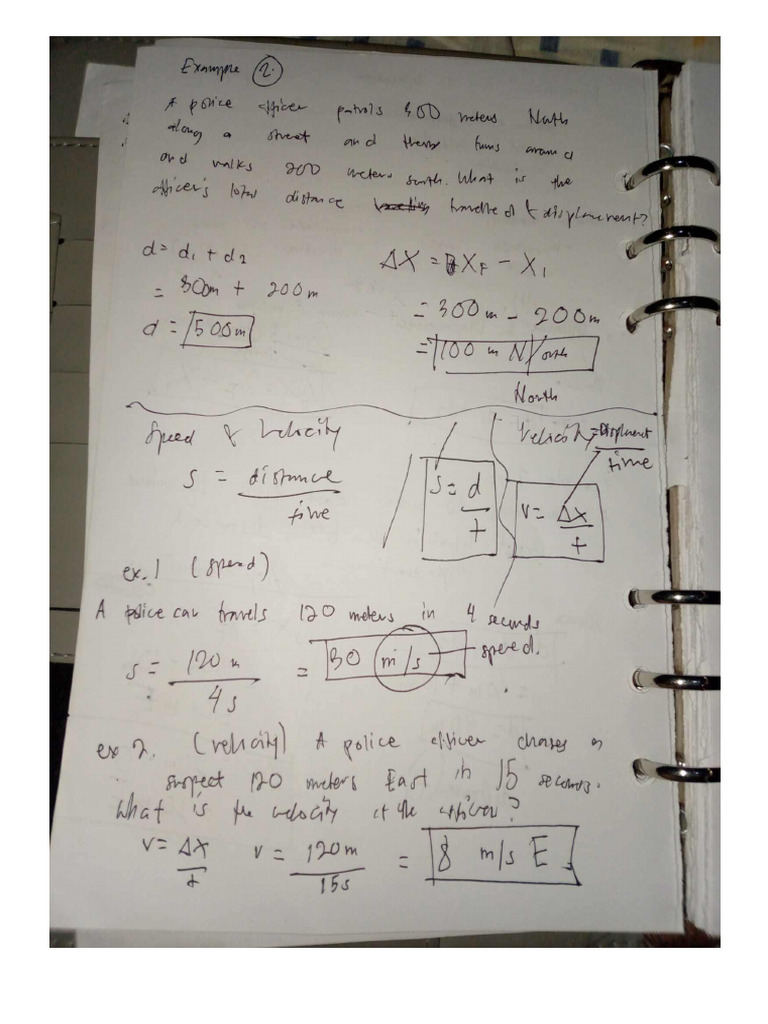 Example 2.
A police officer patrols 300 meters North
along a street and then turns around
and walks 200 meters south. What is the
officer's total distance travelled & displacement?
d = d1 + d2
= 300m + 200m
d = 500m
ΔX = XF - XI
= 300m - 200m
= 100 m North
North
Speed & Velocity
s = distance / time
s = d / t
Velocity = Displacment / time
v = ΔX / t
ex. 1 (speed)
A police car travels 120 meters in 4 seconds
s = 120 m / 4s = 30 m/s - speed.
ex 2. (velocity) A police officer chases a
suspect 120 meters East in 15 seconds.
What is the velocity of the officer?
v = ΔX / t v = 120m / 15s = 8 m/s E